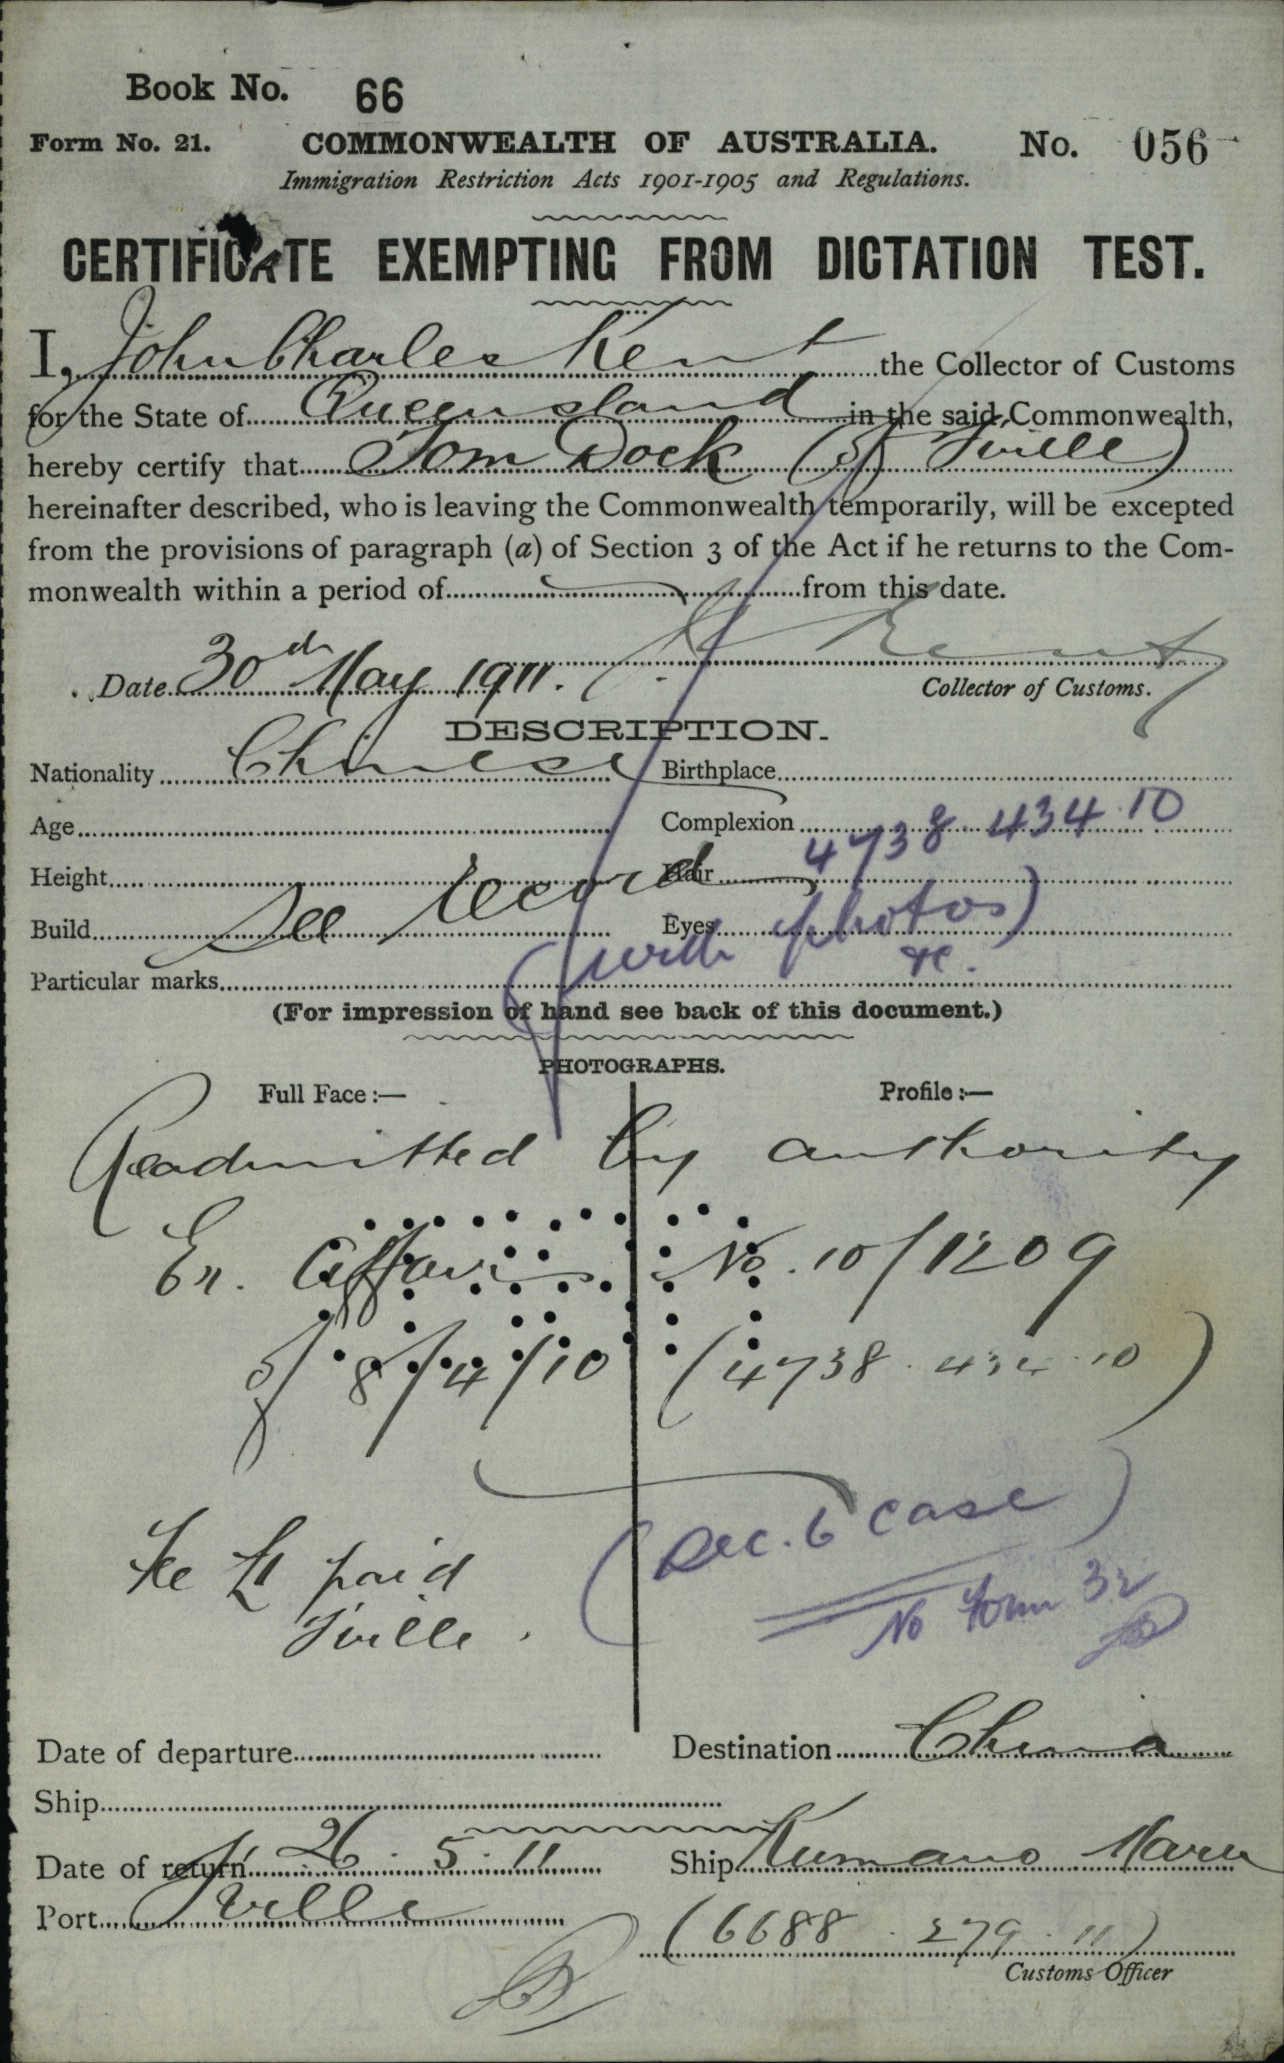 Book No. 66
Form No. 21. COMMONWEALTH OF AUSTRALIA. No. 056
Immigration Restriction Acts 1901-1905 and Regulations.
CERTIFICATE EXEMPTING FROM DICTATION TEST.
I, John Charles Kent the Collector of Customs
for the State of Queensland in the said Commonwealth,
hereby certify that Tom Dock (of T'ville)
hereinafter described, who is leaving the Commonwealth temporarily, will be excepted
from the provisions of paragraph (a) of Section 3 of the Act if he returns to the Com-
monwealth within a period of from this date.
Kent
Date 30th May 1911.
Collector of Customs.
DESCRIPTION.
Nationality Chinese Birthplace
Age Complexion 4738.434.10
Height Hair
See record
Build Eyes
(with photos)
&c.
Particular marks
(For impression of hand see back of this document.)
PHOTOGRAPHS.
Full Face:— Profile:—
Readmitted by authority
Ex. Affairs No. 10/1209
of 8/4/10 (4738.434.10)
(Sec. 6 case)
Fee £1 paid
T'ville.
No Form 32
Date of departure Destination China
Ship
Date of return 26.5.11 Ship Kumano Maru
Port T'ville
(6688.279.11)
Customs Officer